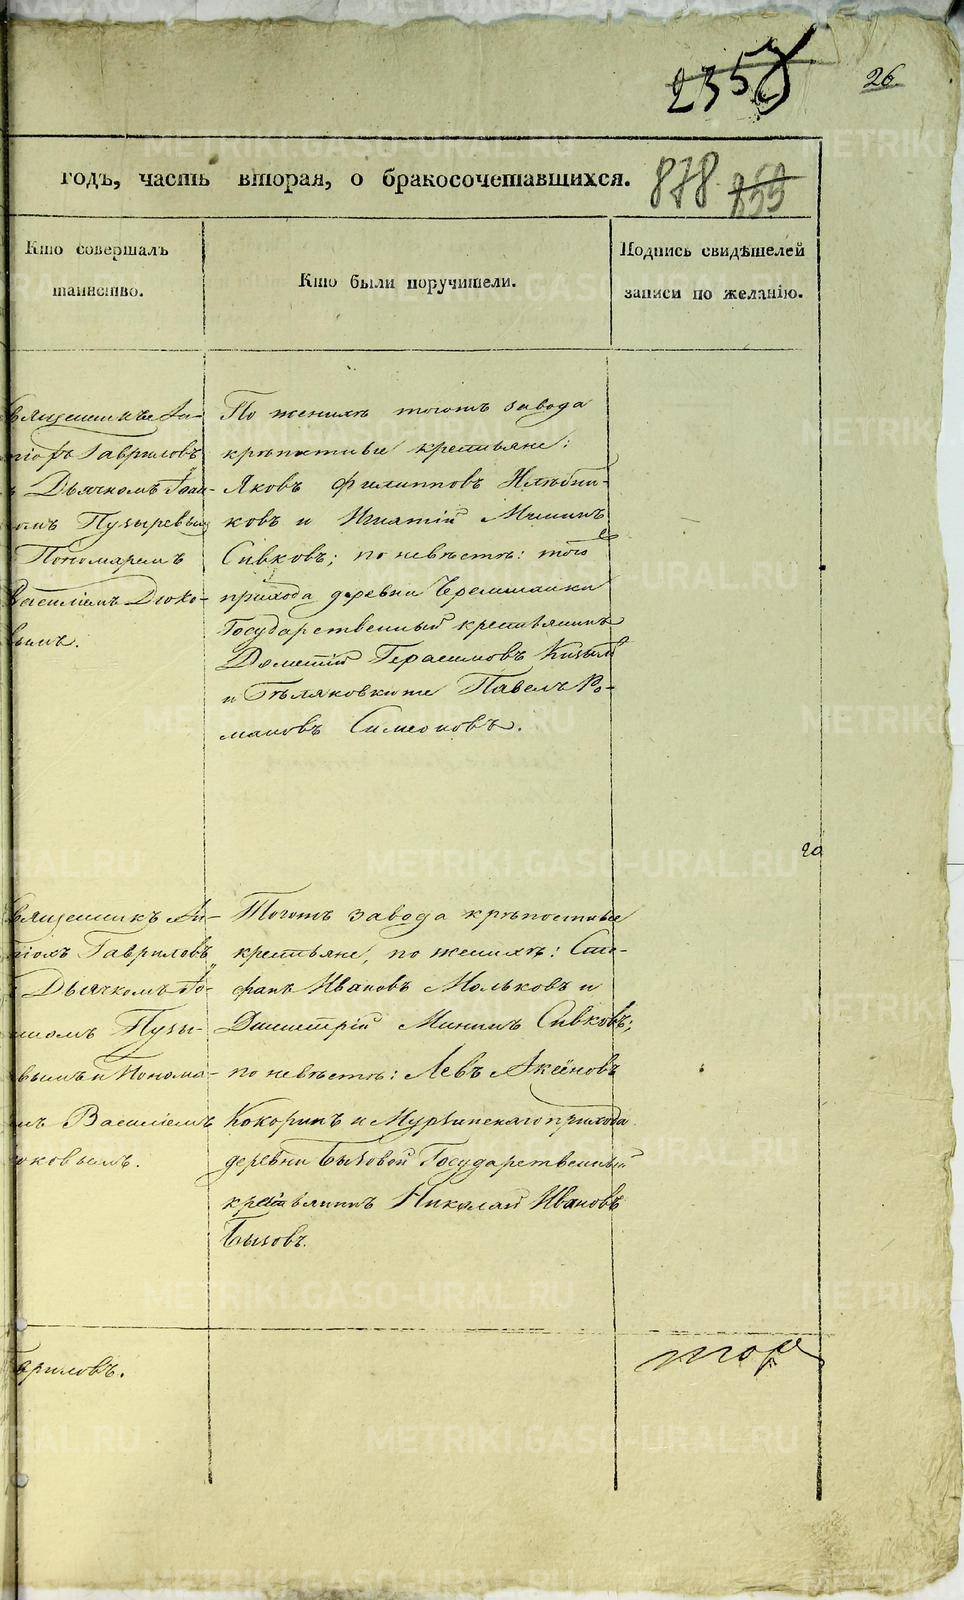 2353
26
годъ, часть вторая, о бракосочетавшихся.
878 253
Кто совершалъ
таинство.
Кто были поручители.
Подпись свидѣтелей
записи по желанію.
вященникъ Ан-
тіохъ Гавриловъ
ъ Дьячкомъ Іоан-
омъ Пузыревымъ
Пономаремъ
Василіемъ Дюко-
вымъ.
По женихѣ тогожъ завода
крѣпостные крестьяне:
Яковъ Филипповъ Хлѣбни-
ковъ и Игнатій Мининъ
Сивковъ; по невѣстѣ: того
прихода деревни Черемшанки
Государственный крестьянинъ
Дометій Герасимовъ
и Бѣляковки же Павелъ Ро-
мановъ Симеоновъ.
20
вященникъ Ан-
тіохъ Гавриловъ
Дьячкомъ Іо-
нномъ Пузы-
вымъ и Понома-
мъ Василіемъ
юковымъ.
Тогожъ завода крѣпостные
крестьяне, по женихѣ: Сте-
фанъ Ивановъ Мольковъ и
Димитрій Мининъ Сивковъ;
по невѣстѣ: Левъ Аксёновъ
Кокоринъ и Мурзинскаго прихода
деревни Бызовой Государственный
крестьянинъ Николай Ивановъ
Бызовъ.
вриловъ.